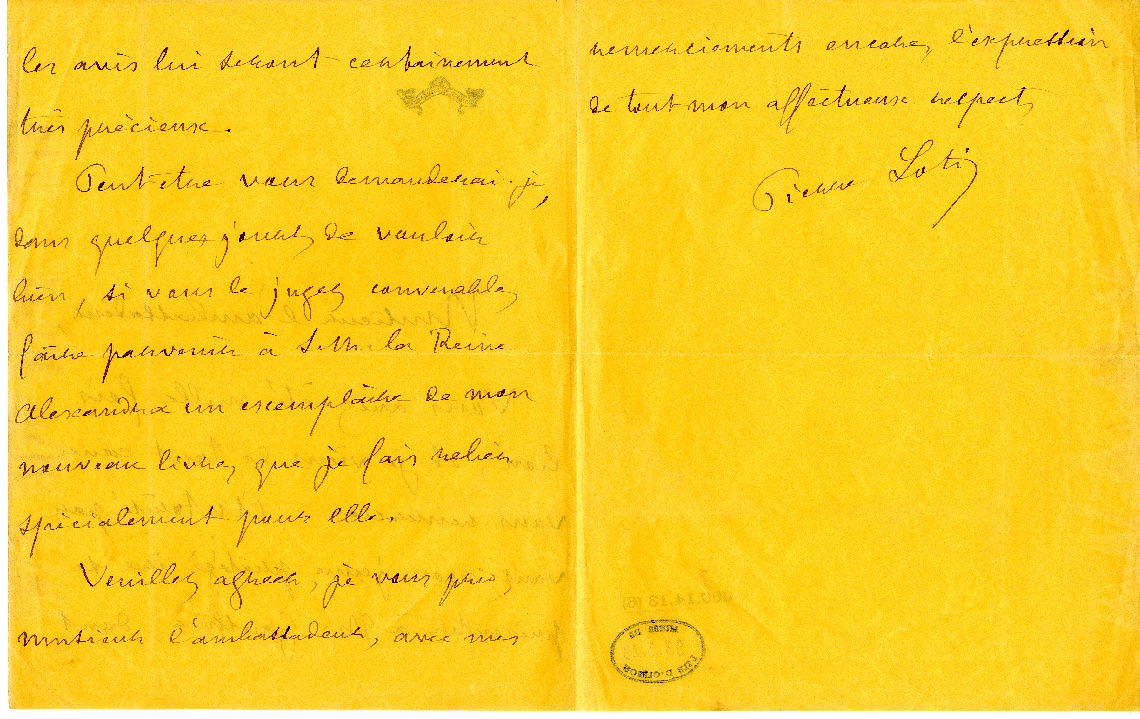 les avis lui seront certainement
très précieux.
Peut-être vous demanderai-je,
dans quelques jours, de vouloir
bien, si vous le jugez convenable,
faire parvenir à S. M. la Reine
Alexandra un exemplaire de mon
nouveau livre, que je fais relier
spécialement pour elle.
Veuillez agréer, je vous prie,
monsieur l'ambassadeur, avec mes
remerciements encore, l'expression
de tout mon affectueux respect,
Pierre Loti